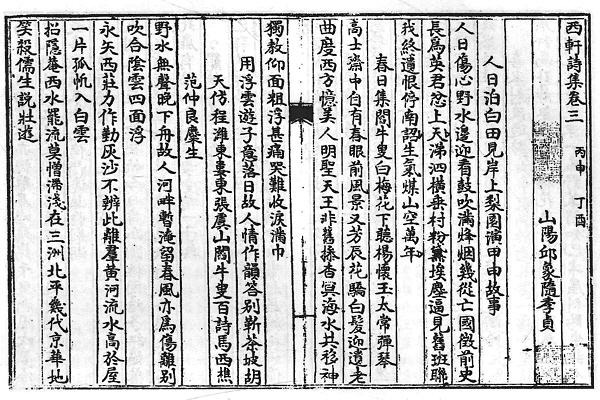 西軒詩集卷三
丙申 丁酉
山陽邱象隨季貞
人日泊白田見岸上梨園演甲申故事
人日傷心野水邊迎看鼓吹滿烽烟幾從亡國徵前史
長爲英君愁上天涕泗橫垂村粉黛埃塵逼見舊班聯
我終遺恨停南詔生氣煤山空萬年
春日集閻牛叟白梅花下聽楊懷玉太常彈琴
高士齋中自有春眼前風景又芳辰花驕白髮迎遺老
曲度西方憶美人明聖天王非舊操杳冥海水共移神
獨教仰面粗浮甚痛哭難收淚滿巾
用浮雲遊子意落日故人情作韻答別靳茶坡胡
天仿程濰東婁東張虞山閻牛叟百詩馬西樵
范仲良麋生
野水無聲晚下舟故人河畔暫淹留春風亦爲傷離別
吹合陰雲四面浮
永矢西莊力作勤灰沙不辨此離羣黃河流水高於屋
一片孤帆入白雲
招隱菴西水罷流莫憎沸淺在三洲北平幾代京華地
笑殺儒生說壯遊